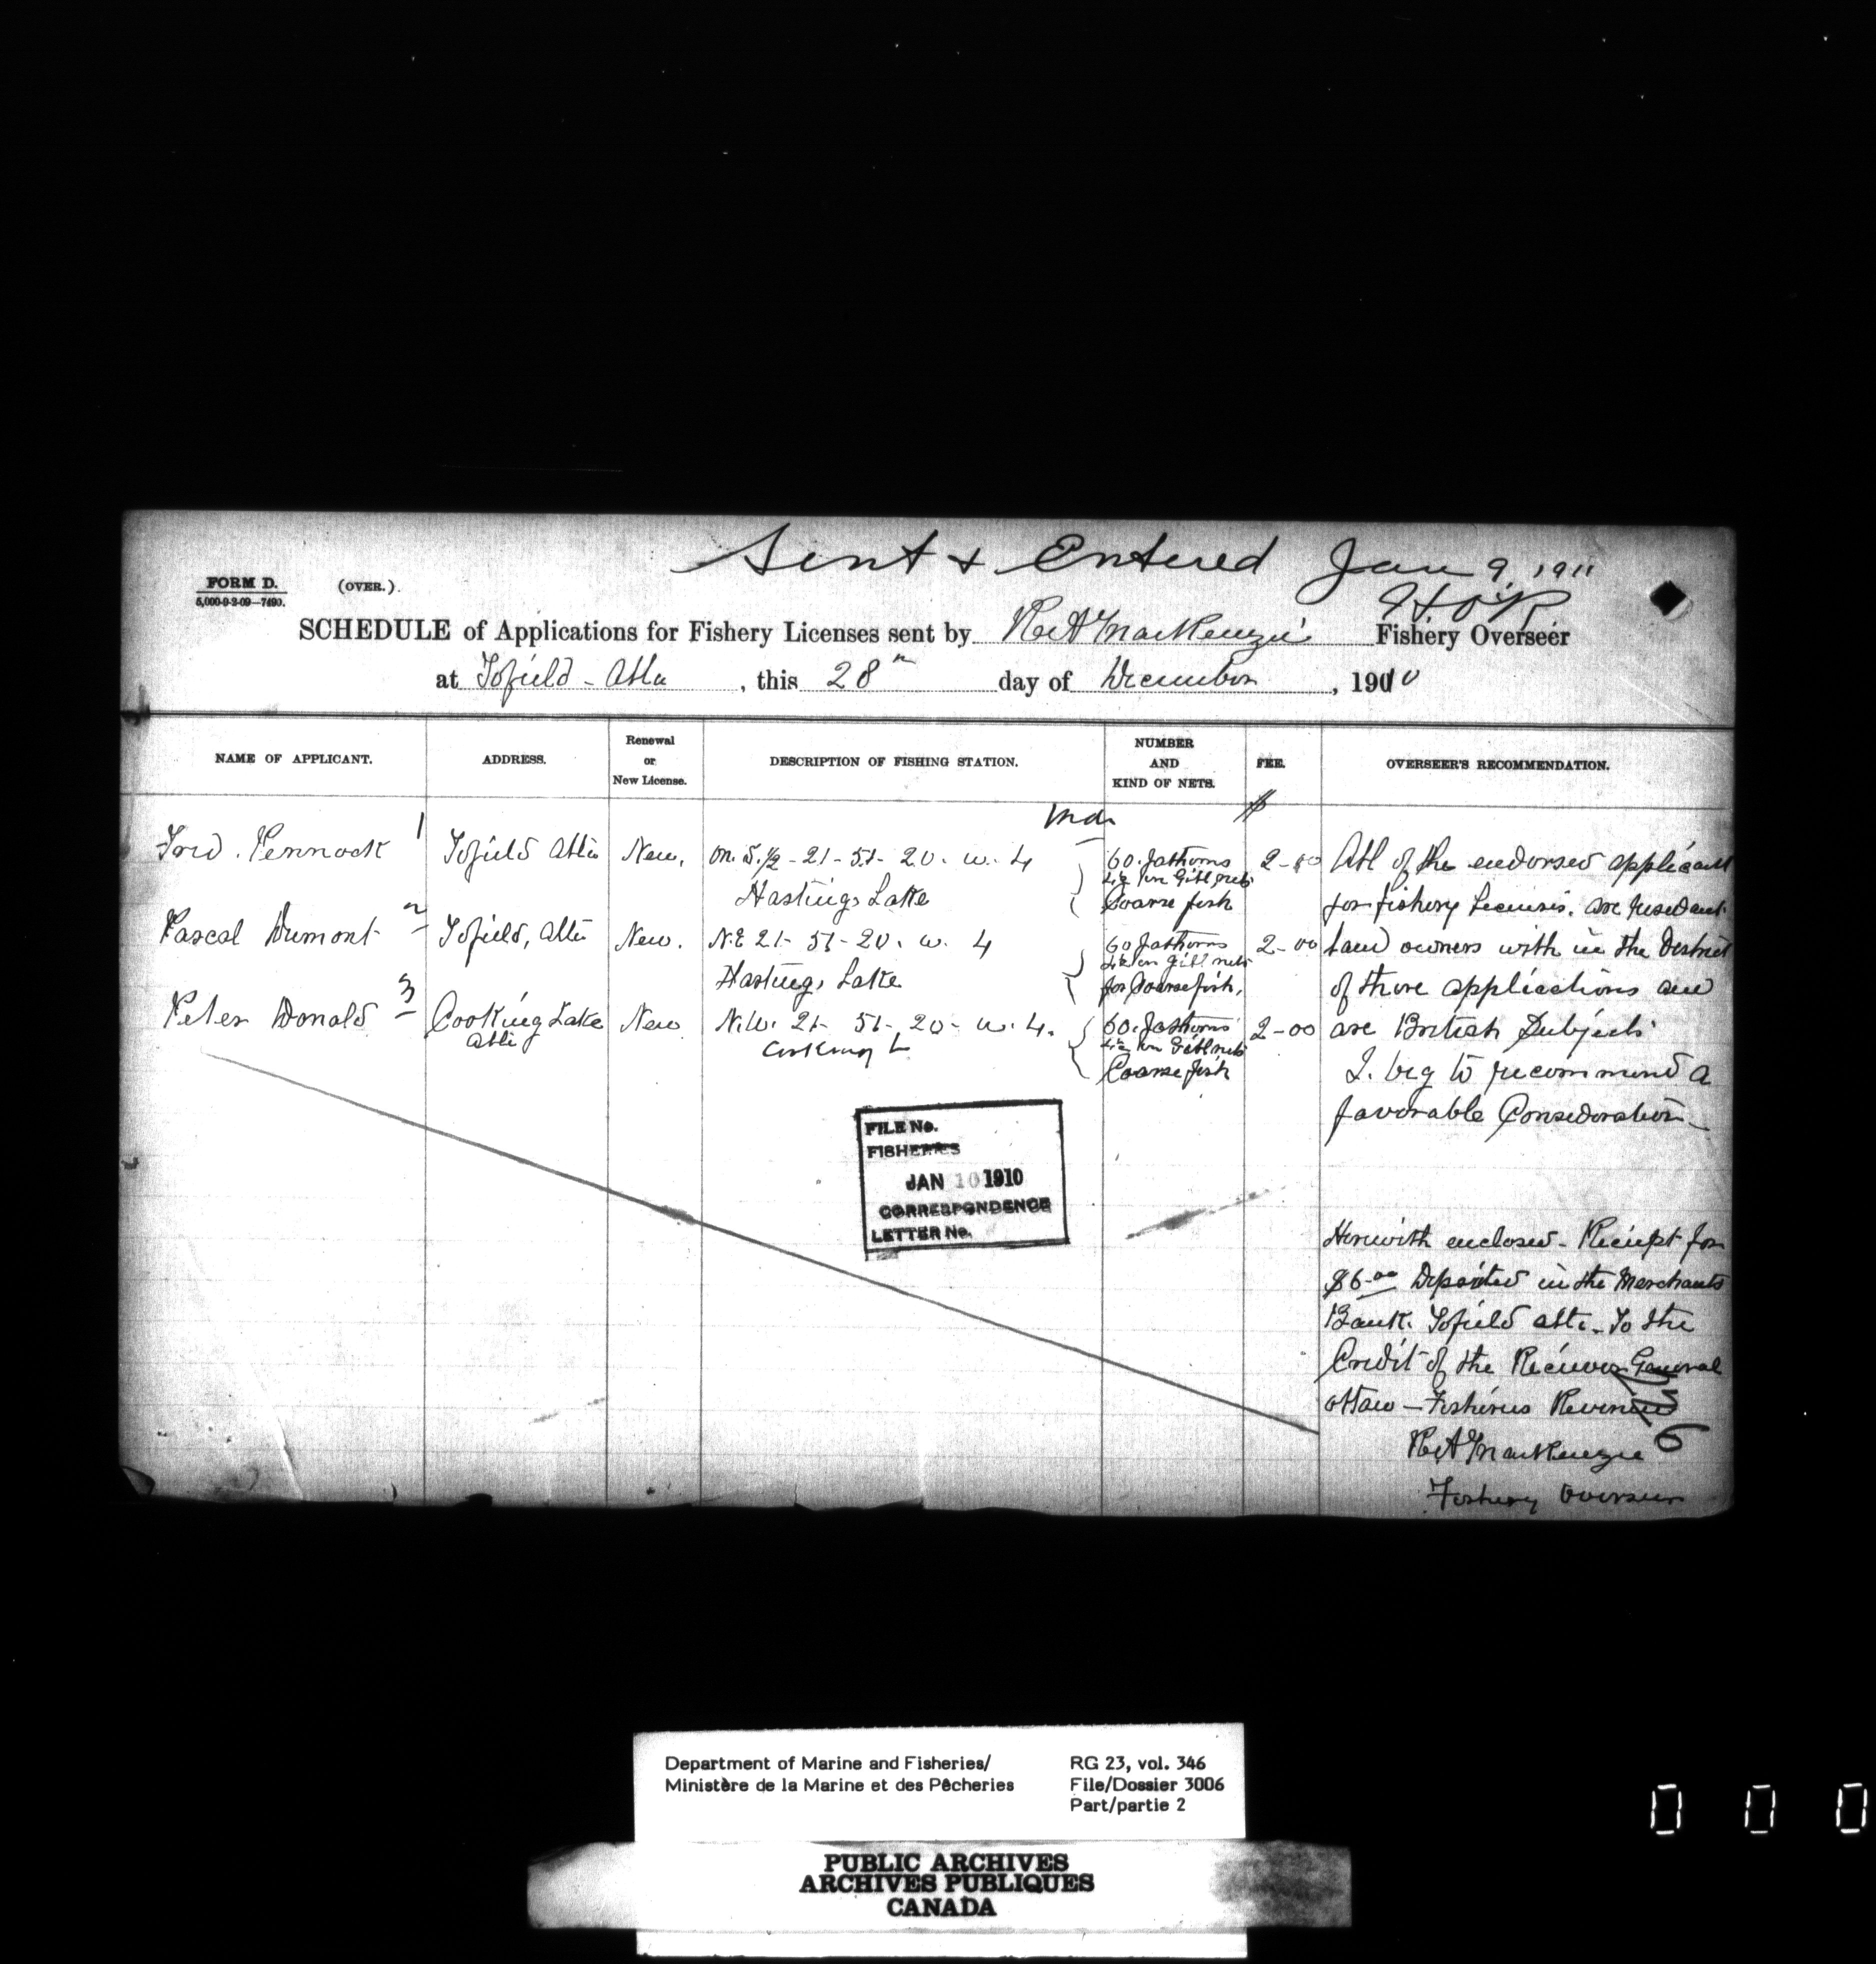 Sent & Entered Jan 9, 1911
FORM D. (OVER.)
5,000-9-2-09—7490.
SCHEDULE of Applications for Fishery Licenses sent by MacKenzie Fishery Overseer
at Tofield - Alta, this 28th day of December, 1910
NAME OF APPLICANT. ADDRESS. Renewal or New License. DESCRIPTION OF FISHING STATION. NUMBER AND KIND OF NETS. FEE. OVERSEER'S RECOMMENDATION.
$
Fred. Pennock 1 Tofield Alta New. on. S. 1/2 - 21 - 51 - 20. w. 4 60. fathoms 2-00 All of the endorsed applicant
Hastings Lake Gill nets
Coarse fish for fishery Licenses. are resedent
Pascal Dumont 2 Tofield, Alta New. N.E 21 - 51 - 20. w. 4 60 fathoms 2-00 Land owners with in the District
Hastings Lake gill nets
for Coarse fish, of there applications and
Peter Donald 3 Cooking Lake New N.W. 21 - 51 - 20 - w. 4. 60. fathoms 2-00 are British Subjects
Alta Cooking L Gill nets
Coarse fish I. beg to recommend a
favorable Consederation
FILE No.
FISHERIES
JAN 10 1910
CORRESPONDENCE
LETTER No.
Herewith enclosed - Reciept for
$6-00 Deposited in the Merchants
Bank. Tofield Alta. To the
Credit of the Reciever General
Ottaw — Fisheries Revenue
MacKenzie
Fishery Overseer
Department of Marine and Fisheries/ RG 23, vol. 346
Ministère de la Marine et des Pêcheries File/Dossier 3006
Part/partie 2
PUBLIC ARCHIVES
ARCHIVES PUBLIQUES
CANADA
0 0 0